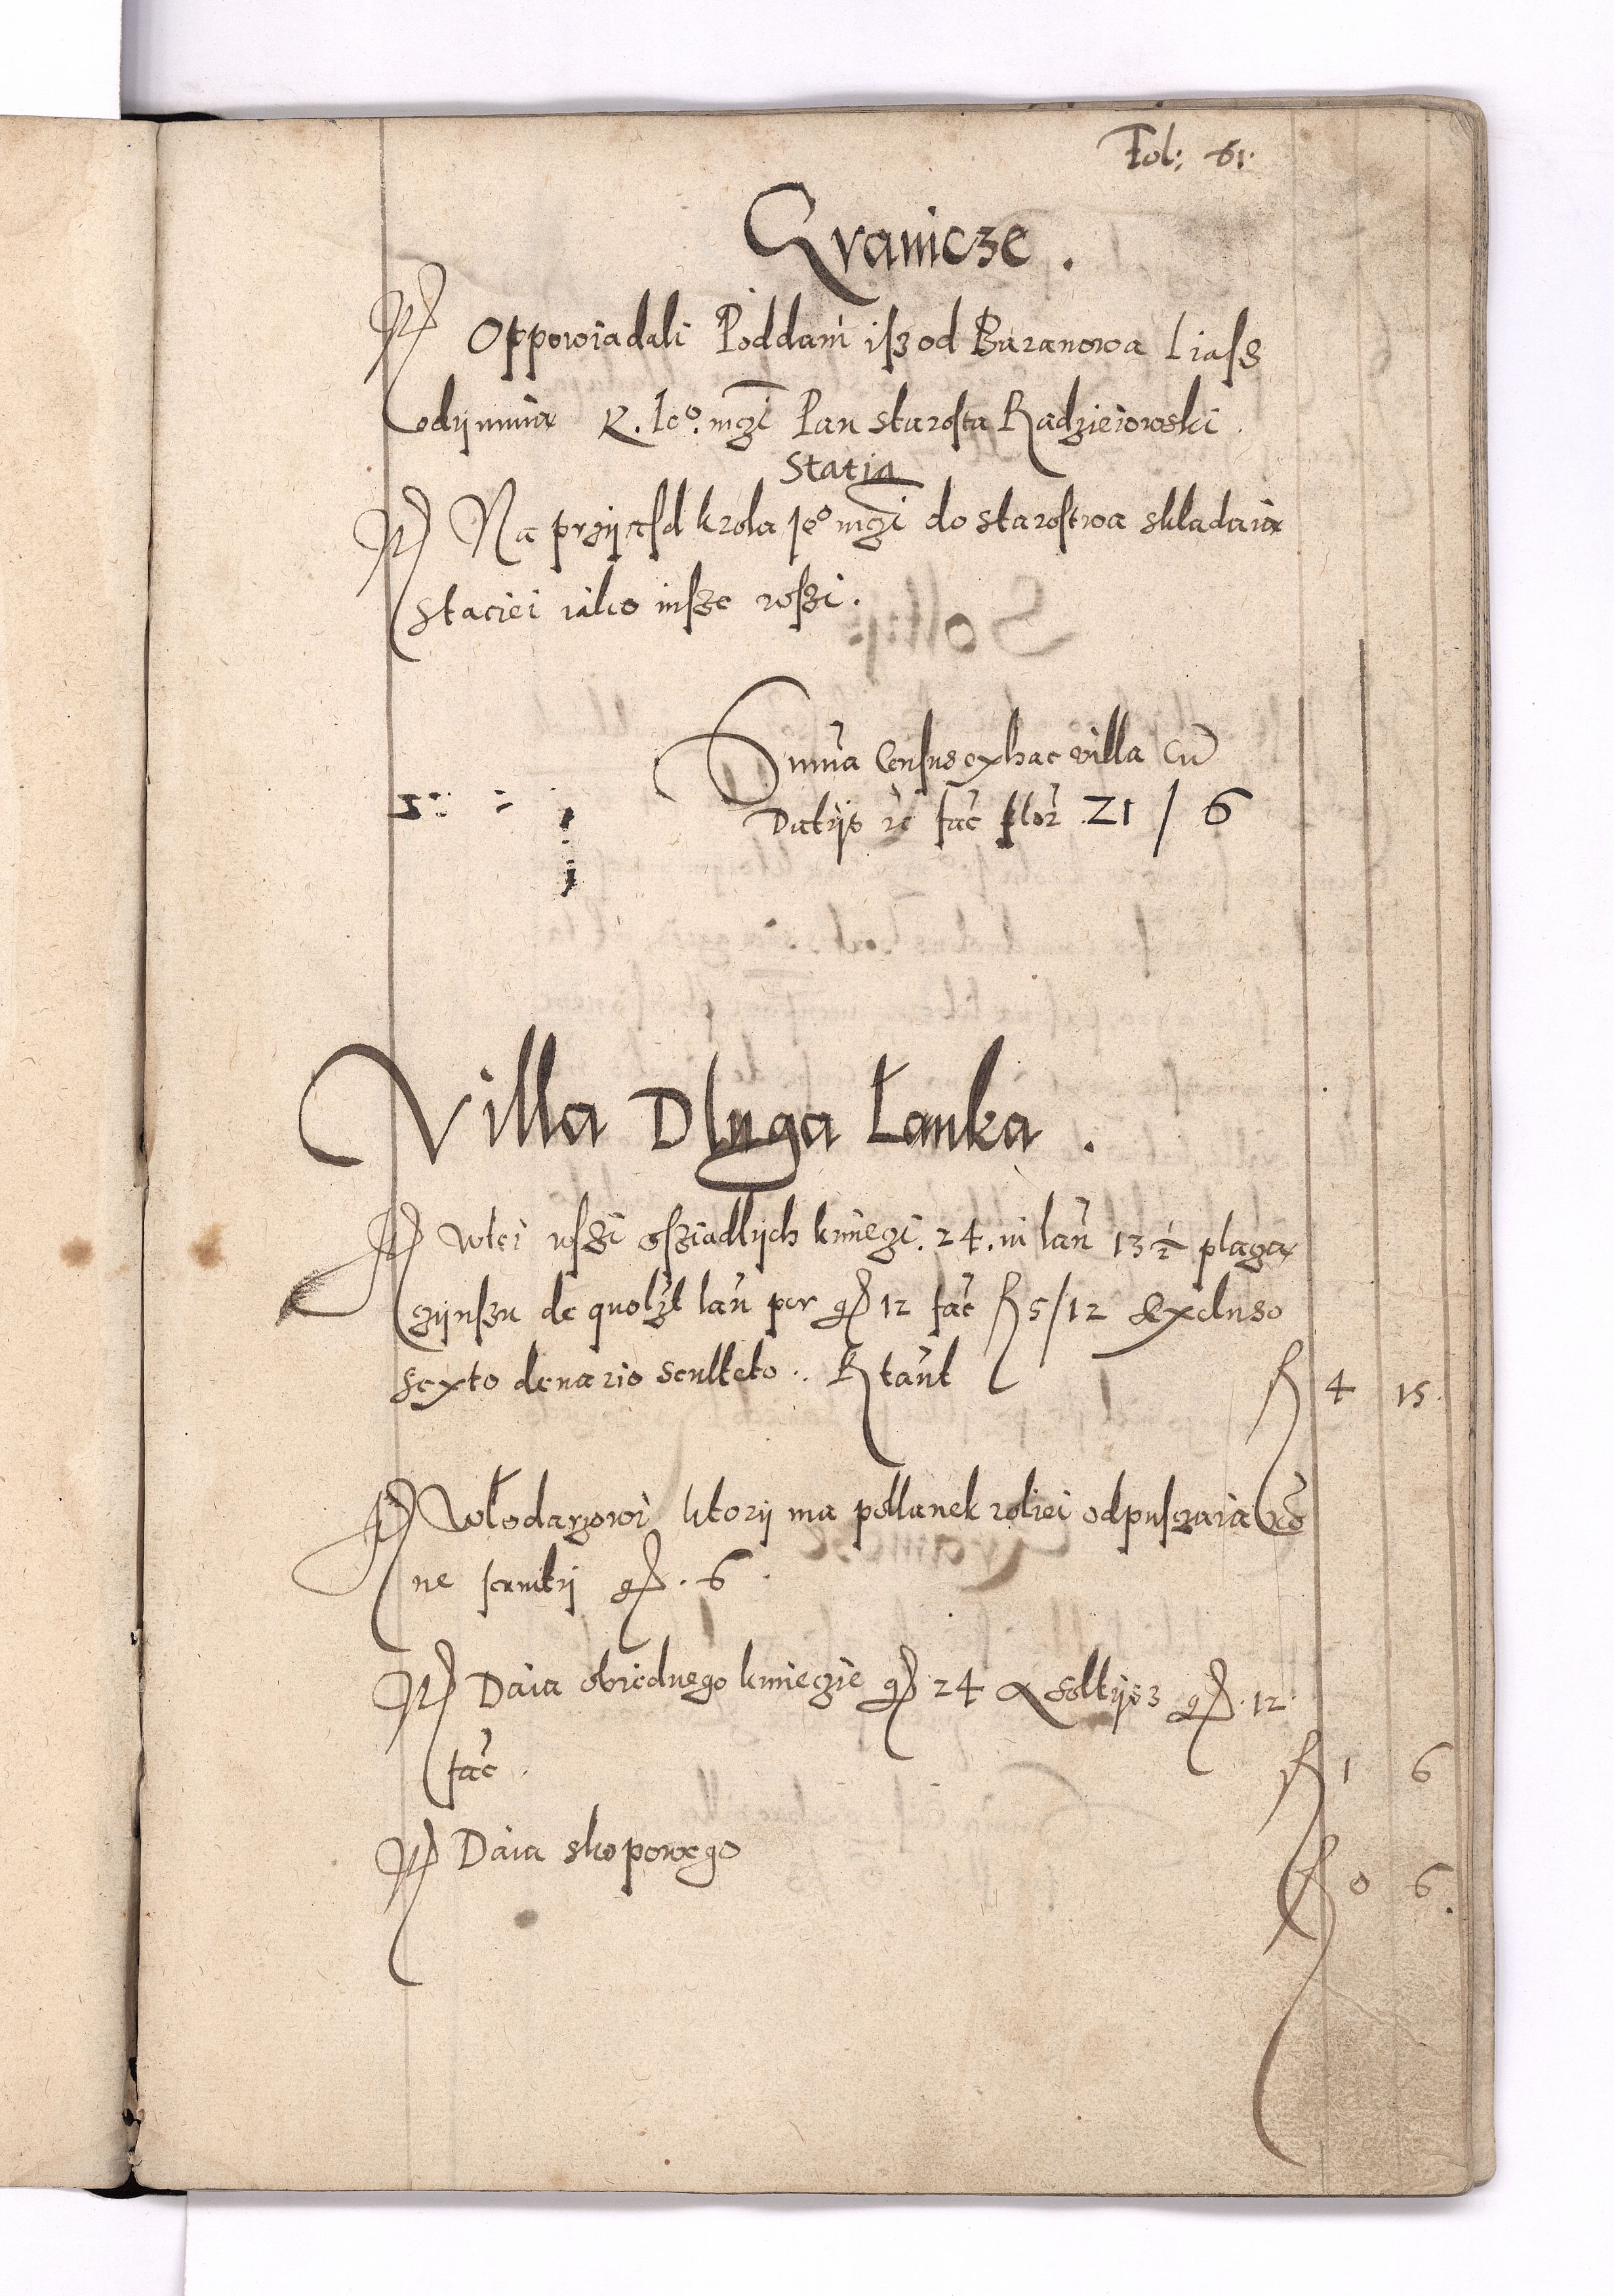 Fol: 61.
Granicze.
Opowiadali Poddani isz od Baranowa Liass
odijmuia K. Ieº. mẕi Pan starosta Radzieiowski.
Statia
Na przijasd krola Ieº mẕi do starostwa skladaia
staciei iako insze wsszi.
Suma Census ex hac villa Cũ
Datijs fac̃ flor̃ 21 / 6
Villa Dluga Łanka.
W tei wsszi osziadlijch kmiezi. 24. in lañ 13 ½ placza
czijnszu de quolzt lañ per gr 12 fac̃ fl 5/12 Excluso
sexto denario sculteto. Rtañt fl 4 15.
Włodarzowi ktorij ma pollanek roliei odpusczaia
ne gr. 6.
Daia obiednego kmiezie gr 24 a soltijs gr. 12.
fac̃. fl 1 6
Daia skopowego fl 0 6.